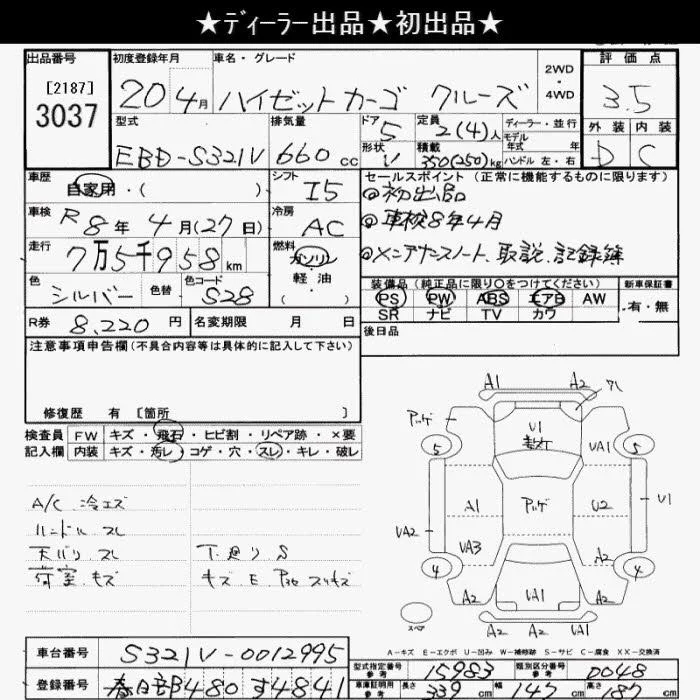 ★ディーラー出品★初出品★
出品番号 初度登録年月 車名・グレード 2WD・4WD 評価点
[2187]
3037 20 4月 ハイゼットカーゴ クルーズ 3.5
型式 排気量 ドア 5 定員 2(4)人 ディーラー・並行 外装 内装
モデル年式 年式
EBD-S321V 660cc 形状 V 積載 350(250)kg ハンドル 左・右 D C
車歴 自家用・( ) シフト I5 セールスポイント(正常に機能するものに限ります)
◎初出品
車検 R8年4月(27日) 冷房 AC ◎車検8年4月
走行 7万5千958km 燃料 ガソリン 軽油 ( ) ◎メンテナンスノート、取説、記録簿
色 シルバー 色替 色コード S28 装備品(純正品に限り○をつけてください) 新車保証書
PS PW ABS エアB AW 有・無
SR ナビ TV カワ
R券 8,220円 名変期限 月 日 後日品
注意事項申告欄(不具合内容等は具体的に記入して下さい)
修復歴 有 [箇所 ]
検査員 FW キズ・飛石・ヒビ割・リペア跡・×要
記入欄 内装 キズ・汚レ・コゲ・穴・スレ・キレ・破レ
A/C 冷エズ
ハンドル スレ
天バリ スレ 下廻り S
荷室 キズ
A1 A2
U1
5 5 UA1
A1 U2 U1
UA2 UA3 A2
4 4
A2 UA1 A2
A2 A2 UA1
スペア
A-キズ E-エクボ U-凹み W-補修跡 S-サビ C-腐食 XX-交換済
車台番号 S321V-0012995
型式指定番号 参考 15983 類別区分番号 参考 0048
登録番号 春日部480 す4841 車庫証明用 参考 長さ 339cm 幅 147cm 高さ 187cm